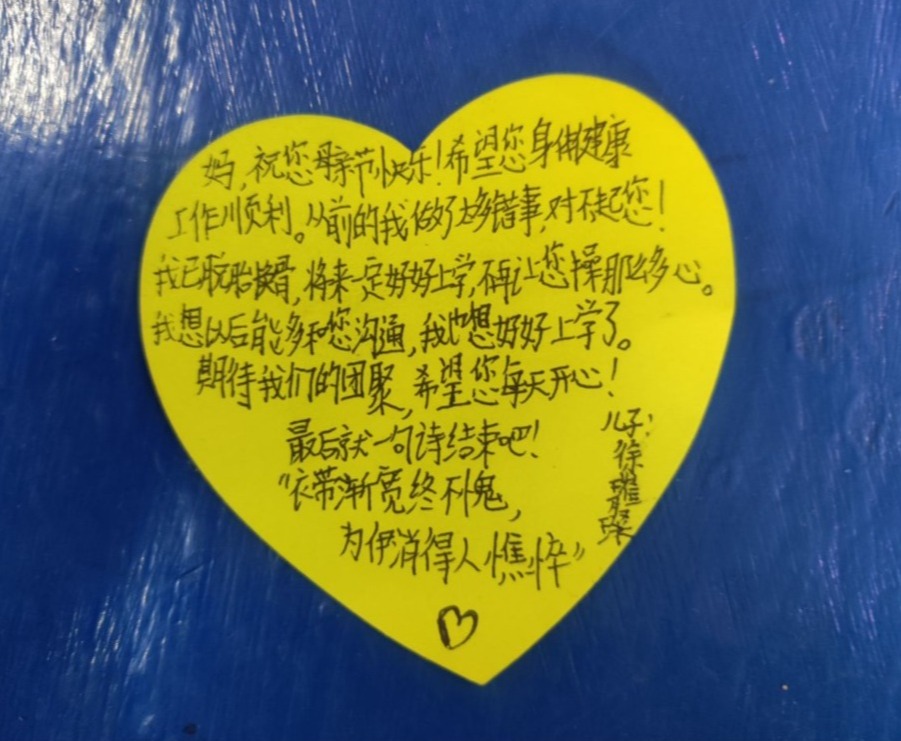 妈,祝您母亲节快乐!希望您身体健康
工作顺利。从前的我做好多错事,对不起您!
我已脱胎换骨,将来一定好好上学,不再让您操那么多心。
我想以后能多和您沟通,我也想好好上学了。
期待我们的团聚,希望您每天开心!
最后就一句诗结束吧!
"衣带渐宽终不悔,
为伊消得人憔悴"
儿子:徐